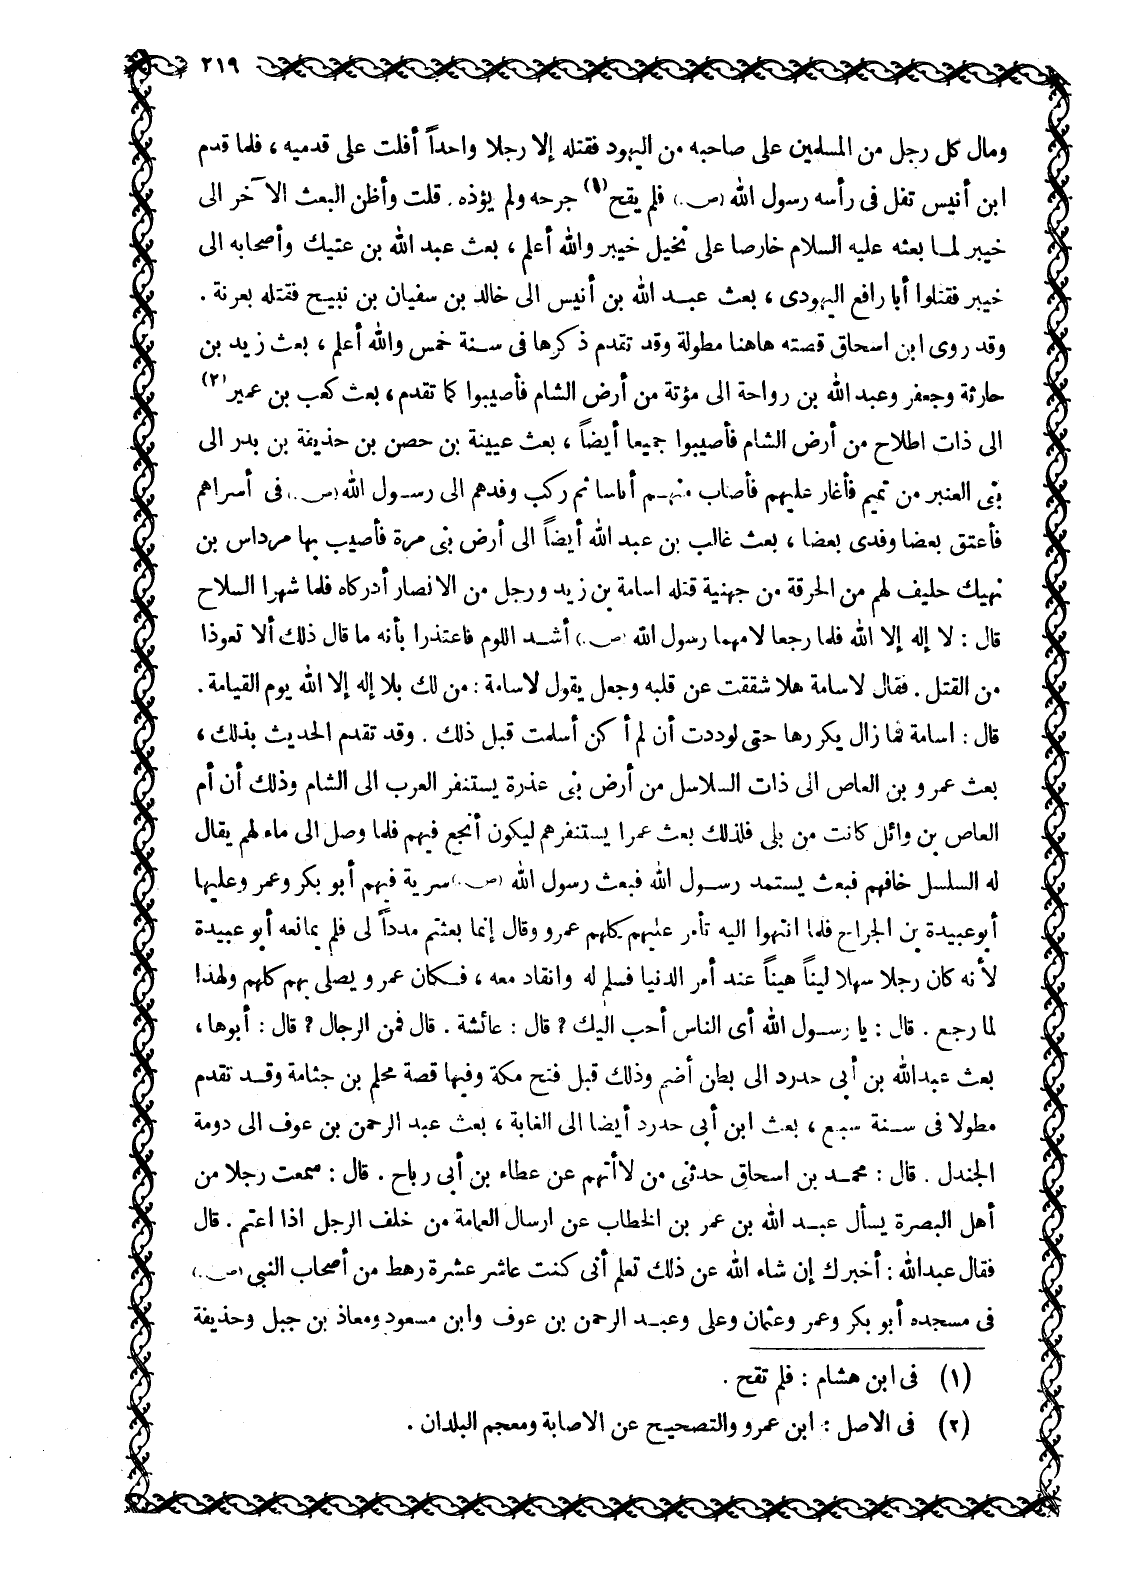 ٢١٩
ومال كل رجل من المسلمين على صاحبه من اليهود فقتله إلا رجلا واحداً أفلت على قدميه ، فلما قدم
ابن أنيس تفل فى رأسه رسول الله (ص.) فلم يقح (١) جرحه ولم يؤذه . قلت وأظن البعث الآخر الى
خيبر لمـا بعثه عليه السلام خارصا على نخيل خيبر والله أعلم ، بعث عبد الله بن عتيك وأصحابه الى
خيبر فقتلوا أبا رافع اليهودى ، بعث عبـد الله بن أنيس الى خالد بن سفيان بن نبيح فقتله بعرنة .
وقد روى ابن اسحاق قصته هاهنا مطولة وقد تقدم ذكرها فى سـنة خمس والله أعلم ، بعث زيد بن
حارثة وجعفر وعبد الله بن رواحة الى مؤتة من أرض الشام فأصيبوا كما تقدم ، بعث كعب بن عمير (٢)
الى ذات اطلاح من أرض الشام فأصيبوا جميعا أيضاً ، بعث عيينة بن حصن بن حذيفة بن بدر الى
بنى العنبر من تميم فأغار عليهم فأصاب منهـم أناسا ثم ركب وفدهم الى رسـول الله (ص.) فى أسراهم
فأعتق بعضا وفدى بعضا ، بعث غالب بن عبد الله أيضاً الى أرض بنى مرة فأصيب بها مرداس بن
نهيك حليف لهم من الحرقة من جهنية قتله اسامة بن زيد ورجل من الانصار أدركاه فلما شهرا السلاح
قال : لا إله إلا الله فلما رجعا لامهما رسول الله (ص.) أشـد اللوم فاعتذرا بأنه ما قال ذلك ألا تعوذا
من القتل . فقال لاسامة هلا شققت عن قلبه وجعل يقول لاسامة : من لك بلا إله إلا الله يوم القيامة .
قال : اسامة فما زال يكررها حتى لوددت أن لم أكن أسلمت قبل ذلك . وقد تقدم الحديث بذلك ،
بعث عمرو بن العاص الى ذات السلاسل من أرض بنى عذرة يستنفر العرب الى الشام وذلك أن أم
العاص بن وائل كانت من بلى فلذلك بعث عمرا يستنفرهم ليكون أنجع فيهم فلما وصل الى ماء لهم يقال
له السلسل خافهم فبعث يستمد رسـول الله فبعث رسول الله (ص.) سرية فيهم أبو بكر وعمر وعليها
أبو عبيدة بن الجراح فلما انتهوا اليه تأمر عليهم كلهم عمرو وقال إنما بعثتم مدداً لى فلم يمانعه أبو عبيدة
لأنه كان رجلا سهلا ليناً هيناً عند أمر الدنيا فسلم له وانقاد معه ، فـكان عمرو يصلى بهم كلهم ولهذا
لما رجع . قال : يا رسـول الله أى الناس أحب اليك ? قال : عائشة . قال فمن الرجال ? قال : أبوها ،
بعث عبد الله بن أبى حدرد الى بطن أضم وذلك قبل فتح مكة وفيها قصة محلم بن جثامة وقـد تقدم
مطولا فى سـنة سبع ، بعث ابن أبى حدرد أيضا الى الغابة ، بعث عبد الرحمن بن عوف الى دومة
الجندل . قال : محمـد بن اسحاق حدثنى من لا أتهم عن عطاء بن أبى رباح . قال : سمعت رجلا من
أهل البصرة يسأل عبـد الله بن عمر بن الخطاب عن ارسال العمامة من خلف الرجل اذا اعتم . قال
فقال عبد الله : أخبرك إن شاء الله عن ذلك تعلم أنى كنت عاشر عشرة رهط من أصحاب النبى (ص.)
فى مسجده أبو بكر وعمر وعثمان وعلى وعبـد الرحمن بن عوف وابن مسعود ومعاذ بن جبل وحذيفة
(١) فى ابن هشام : فلم تقح .
(٢) فى الاصل : ابن عمرو والتصحيح عن الاصابة ومعجم البلدان .